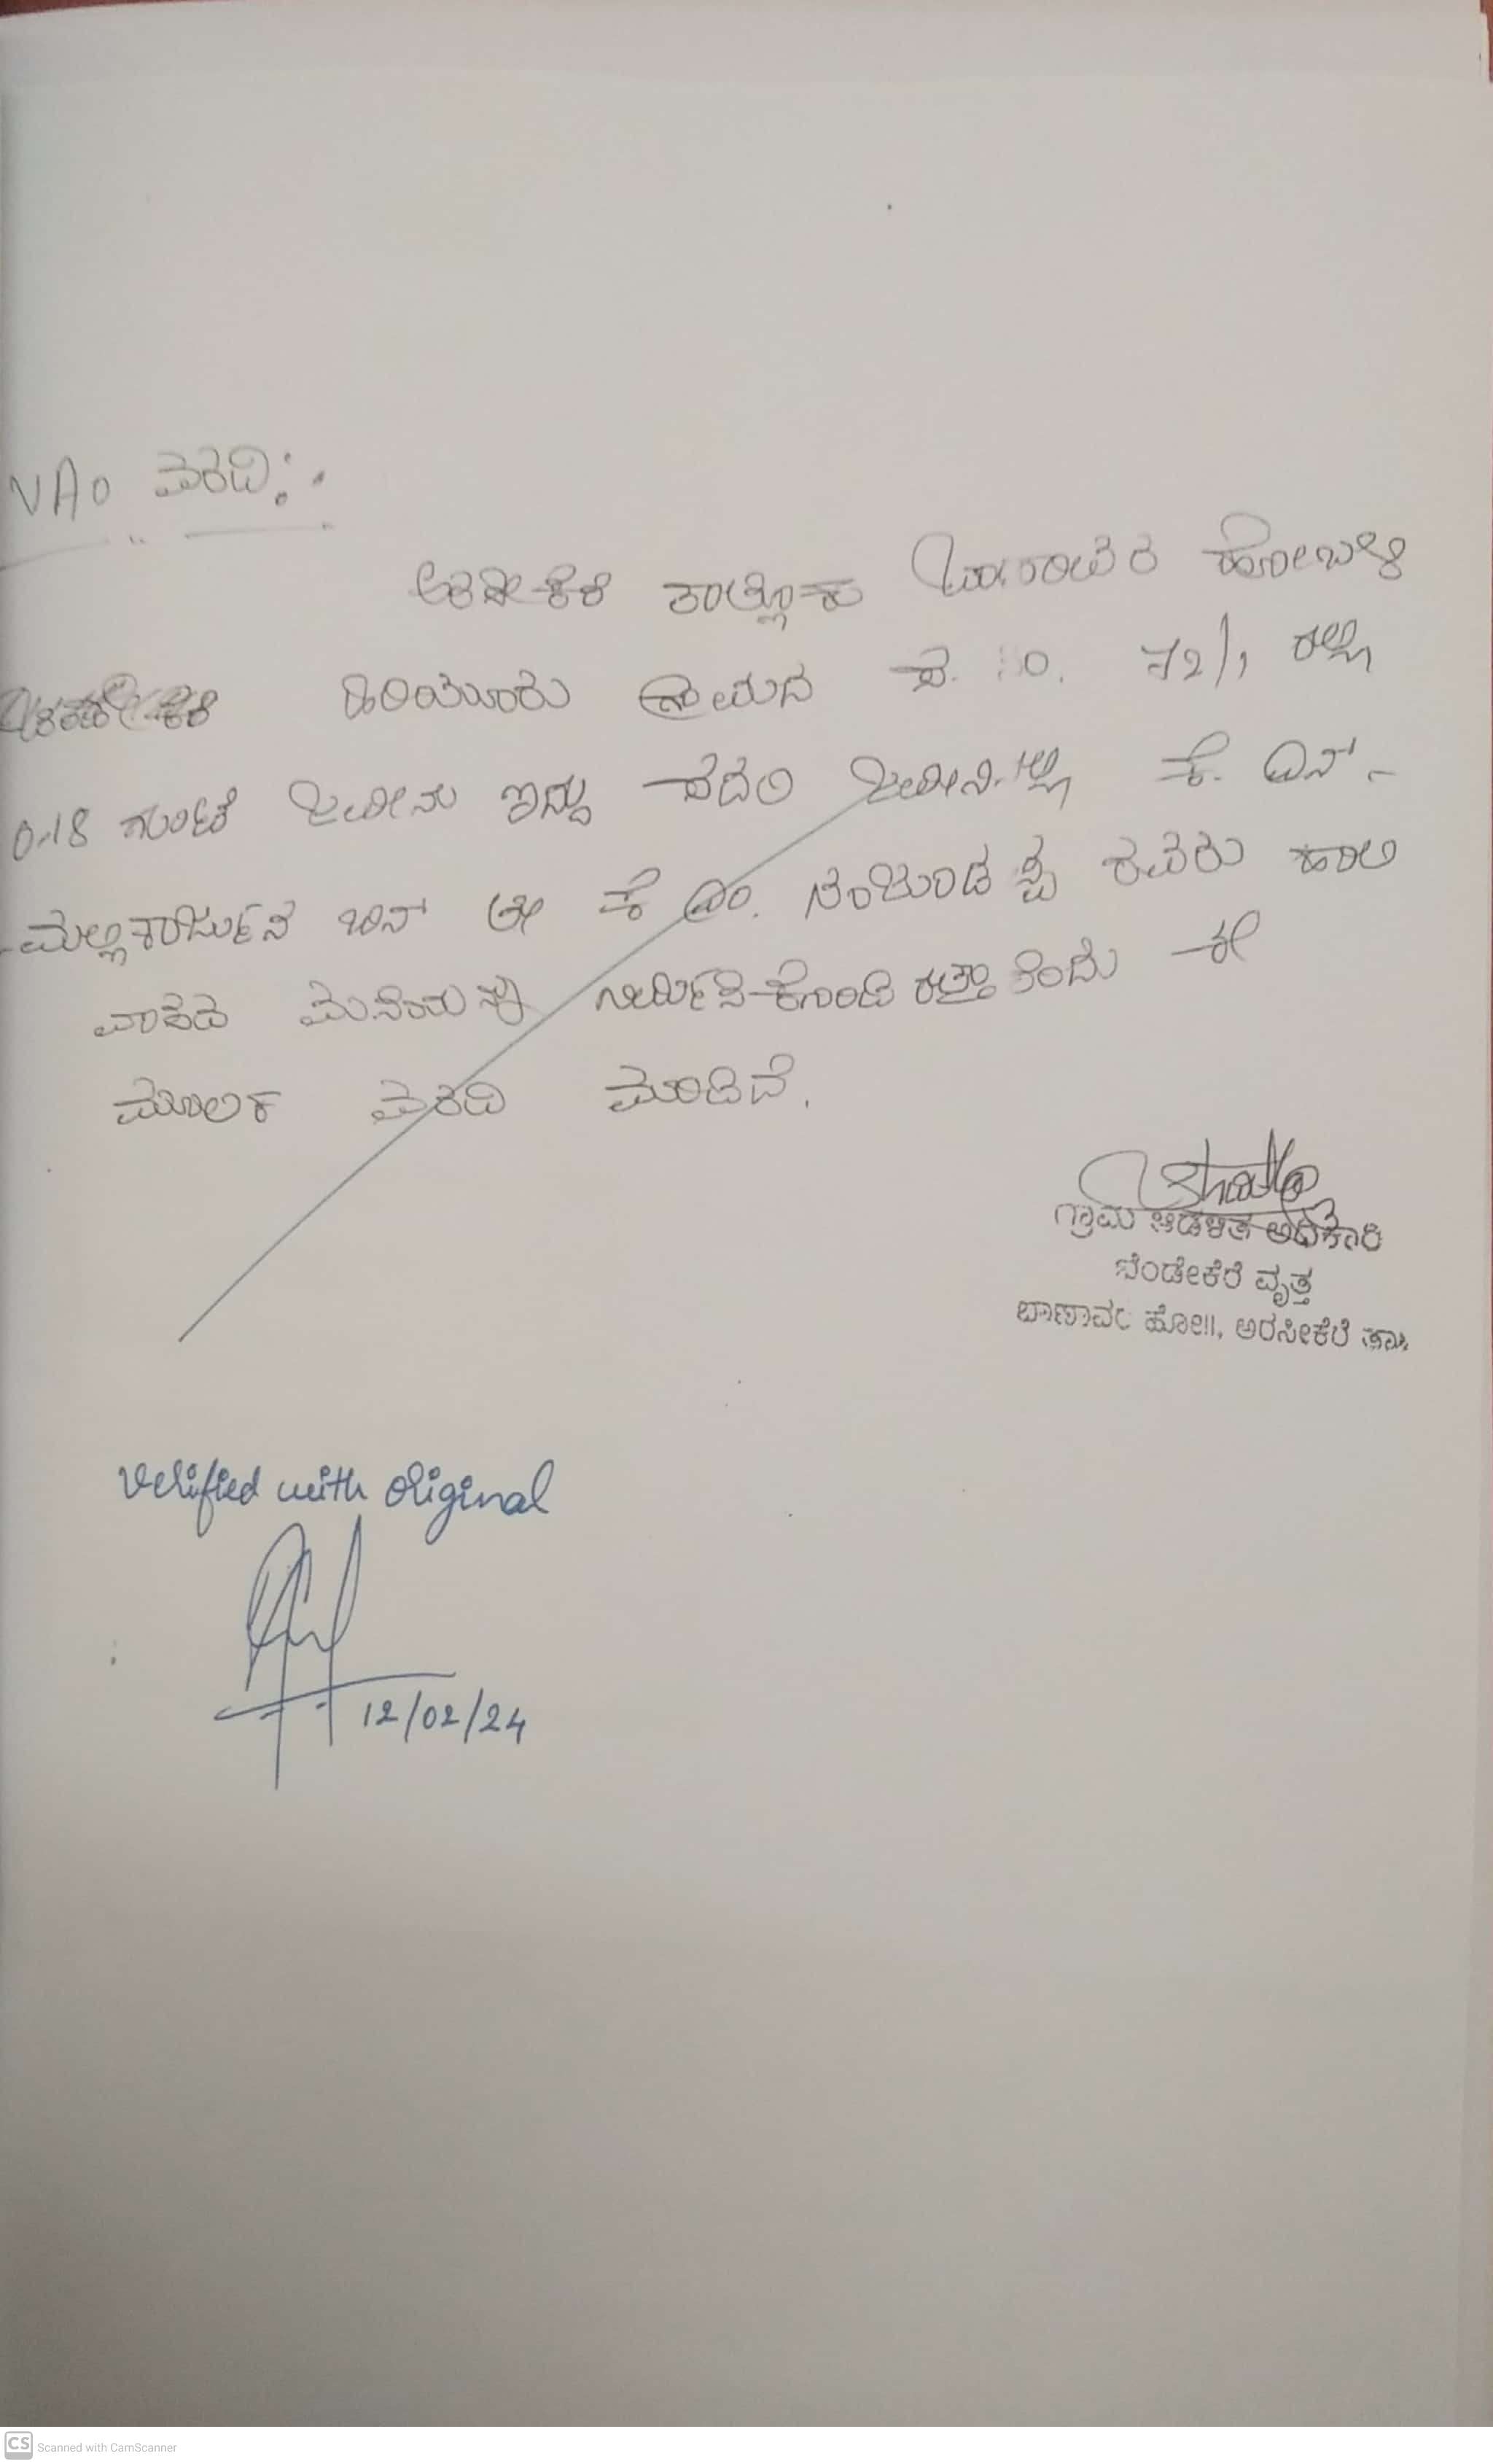 VAO ವರದಿ:-
ಅರಸೀಕೆರೆ ತಾಲ್ಲೂಕು ಬಾಣಾವರ ಹೋಬಳಿ
ಹಿರಿಯೂರು ಗ್ರಾಮದ ಸ. ನಂ. 72/1 ರಲ್ಲಿ
0.18 ಗುಂಟೆ ಜಮೀನು ಇದ್ದು ಸದರಿ ಜಮೀನಿನಲ್ಲಿ ಕೆ. ಎನ್ -
ಮಲ್ಲಿಕಾರ್ಜುನ ಬಿನ್ ಶ್ರೀ ಕೆ ಎಂ. ನಂಜುಂಡಪ್ಪ ರವರು ಹಾಲಿ
ವಾಸದ ಮನೆಯನ್ನು ನಿರ್ಮಿಸಿಕೊಂಡಿರುತ್ತಾರೆಂದು ಈ
ಮೂಲಕ ವರದಿ ಮಾಡಿದೆ.
ಗ್ರಾಮ ಆಡಳಿತ ಅಧಿಕಾರಿ
ಬೆಂಡೇಕೆರೆ ವೃತ್ತ
ಬಾಣಾವರ ಹೋ||, ಅರಸೀಕೆರೆ ತಾ.
Verified with original
12/02/24
CS Scanned with CamScanner